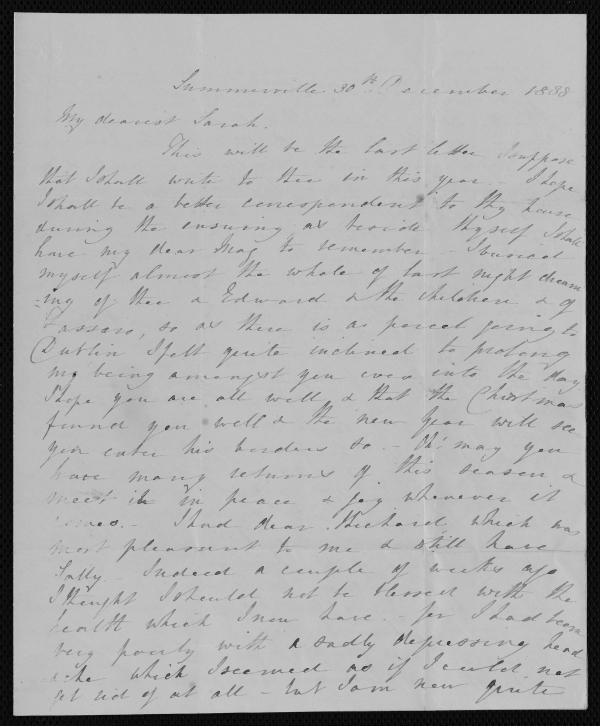 Summerville 30th December 1838
My dearest Sarah.
This will be the last letter I suppose
that I shall write to thee in this year - I hope
I shall be a better correspondent to thy house
during the ensuing as beside thyself I shall
have my dear Mag to remember - I busied
myself almost the whole of last night dream
=ing of thee & Edward & the children & of
Fassaro, so as there is a parcel going to
Dublin I felt quite inclined to prolong
my being amongst you even into the day
I hope you are all well & that the Christmas
found you well & the new year will see
you enter his borders so. - Oh! may you
have many returns of this season &
meet it in peace & joy whenever it
comes. - I had dear Richard which was
most pleasant to me & still have
Sally - Indeed a couple of weeks ago
I thought I should not be blessed with the
health which I now have - for I had been
very poorly with a sadly depressing head
ache which I seemed as if I could not
get rid of at all - but I am now quite